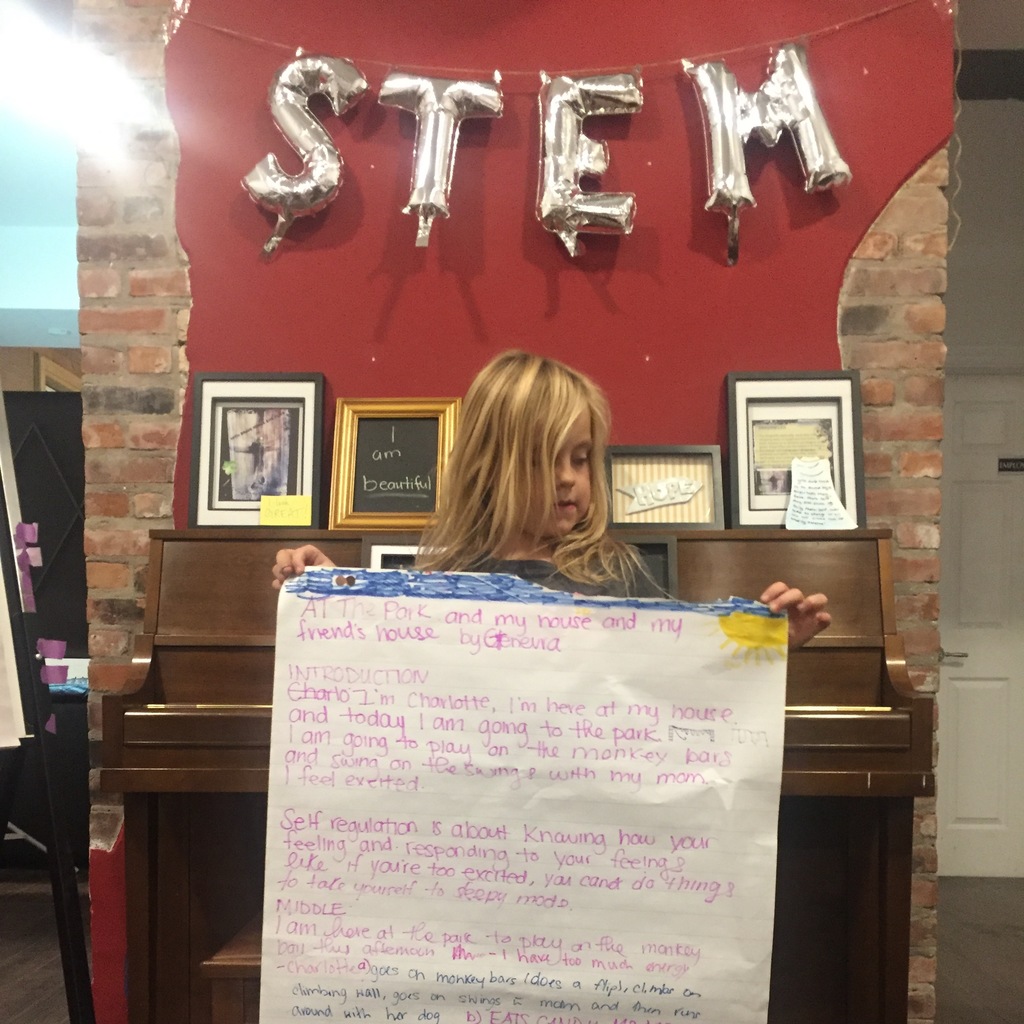 STEM
I
am
beautiful
HOPE
EMPLOY
AT The Park and my house and my
friend's house by Genevra
INTRODUCTION
Charlo I'm Charlotte, I'm here at my house
and today I am going to the park
I am going to play on the monkey bars
and swing on the swings with my mom.
I feel excited.
Self regulation is about knowing how your
feeling and responding to your feelings
like if you're too excited, you can do things
to take yourself to sleepy mode.
MIDDLE
I am here at the park to play on the monkey
bars this afternoon - I have too much energy
-Charlotte a) goes on monkey bars (does a flip), climbs on
climbing wall, goes on swings c mom and then runs
around with her dog b) EATS CANDY